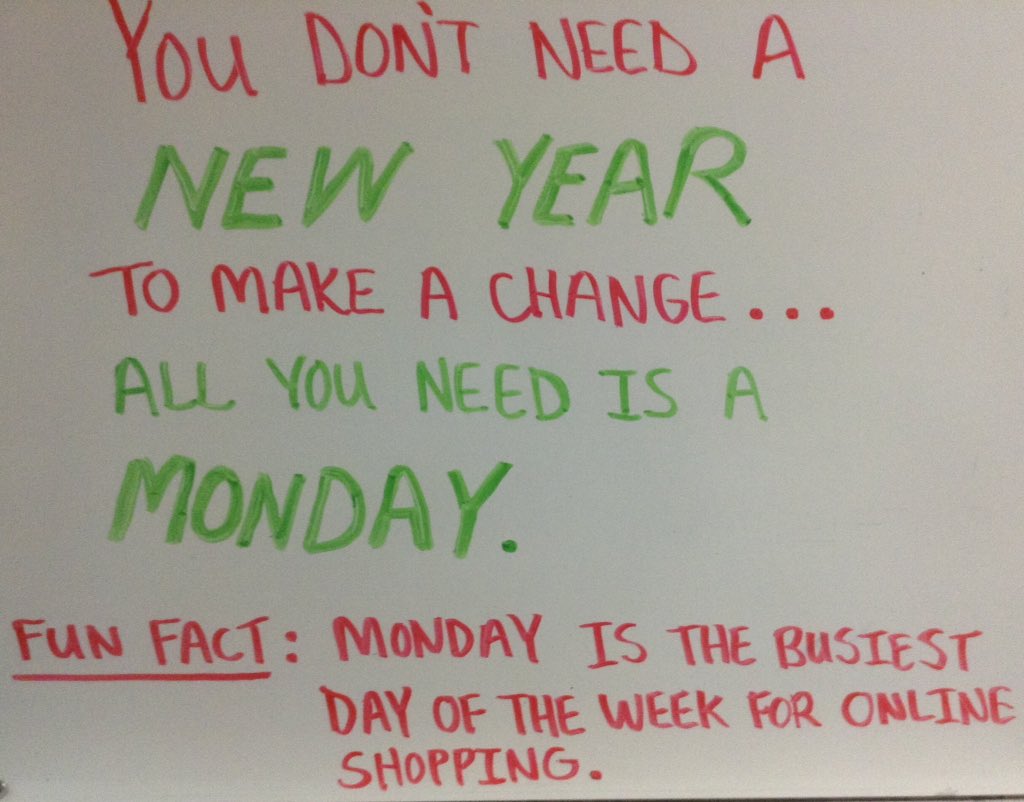 YOU DON'T NEED A
NEW YEAR
TO MAKE A CHANGE...
ALL YOU NEED IS A
MONDAY.
FUN FACT: MONDAY IS THE BUSIEST
DAY OF THE WEEK FOR ONLINE
SHOPPING.